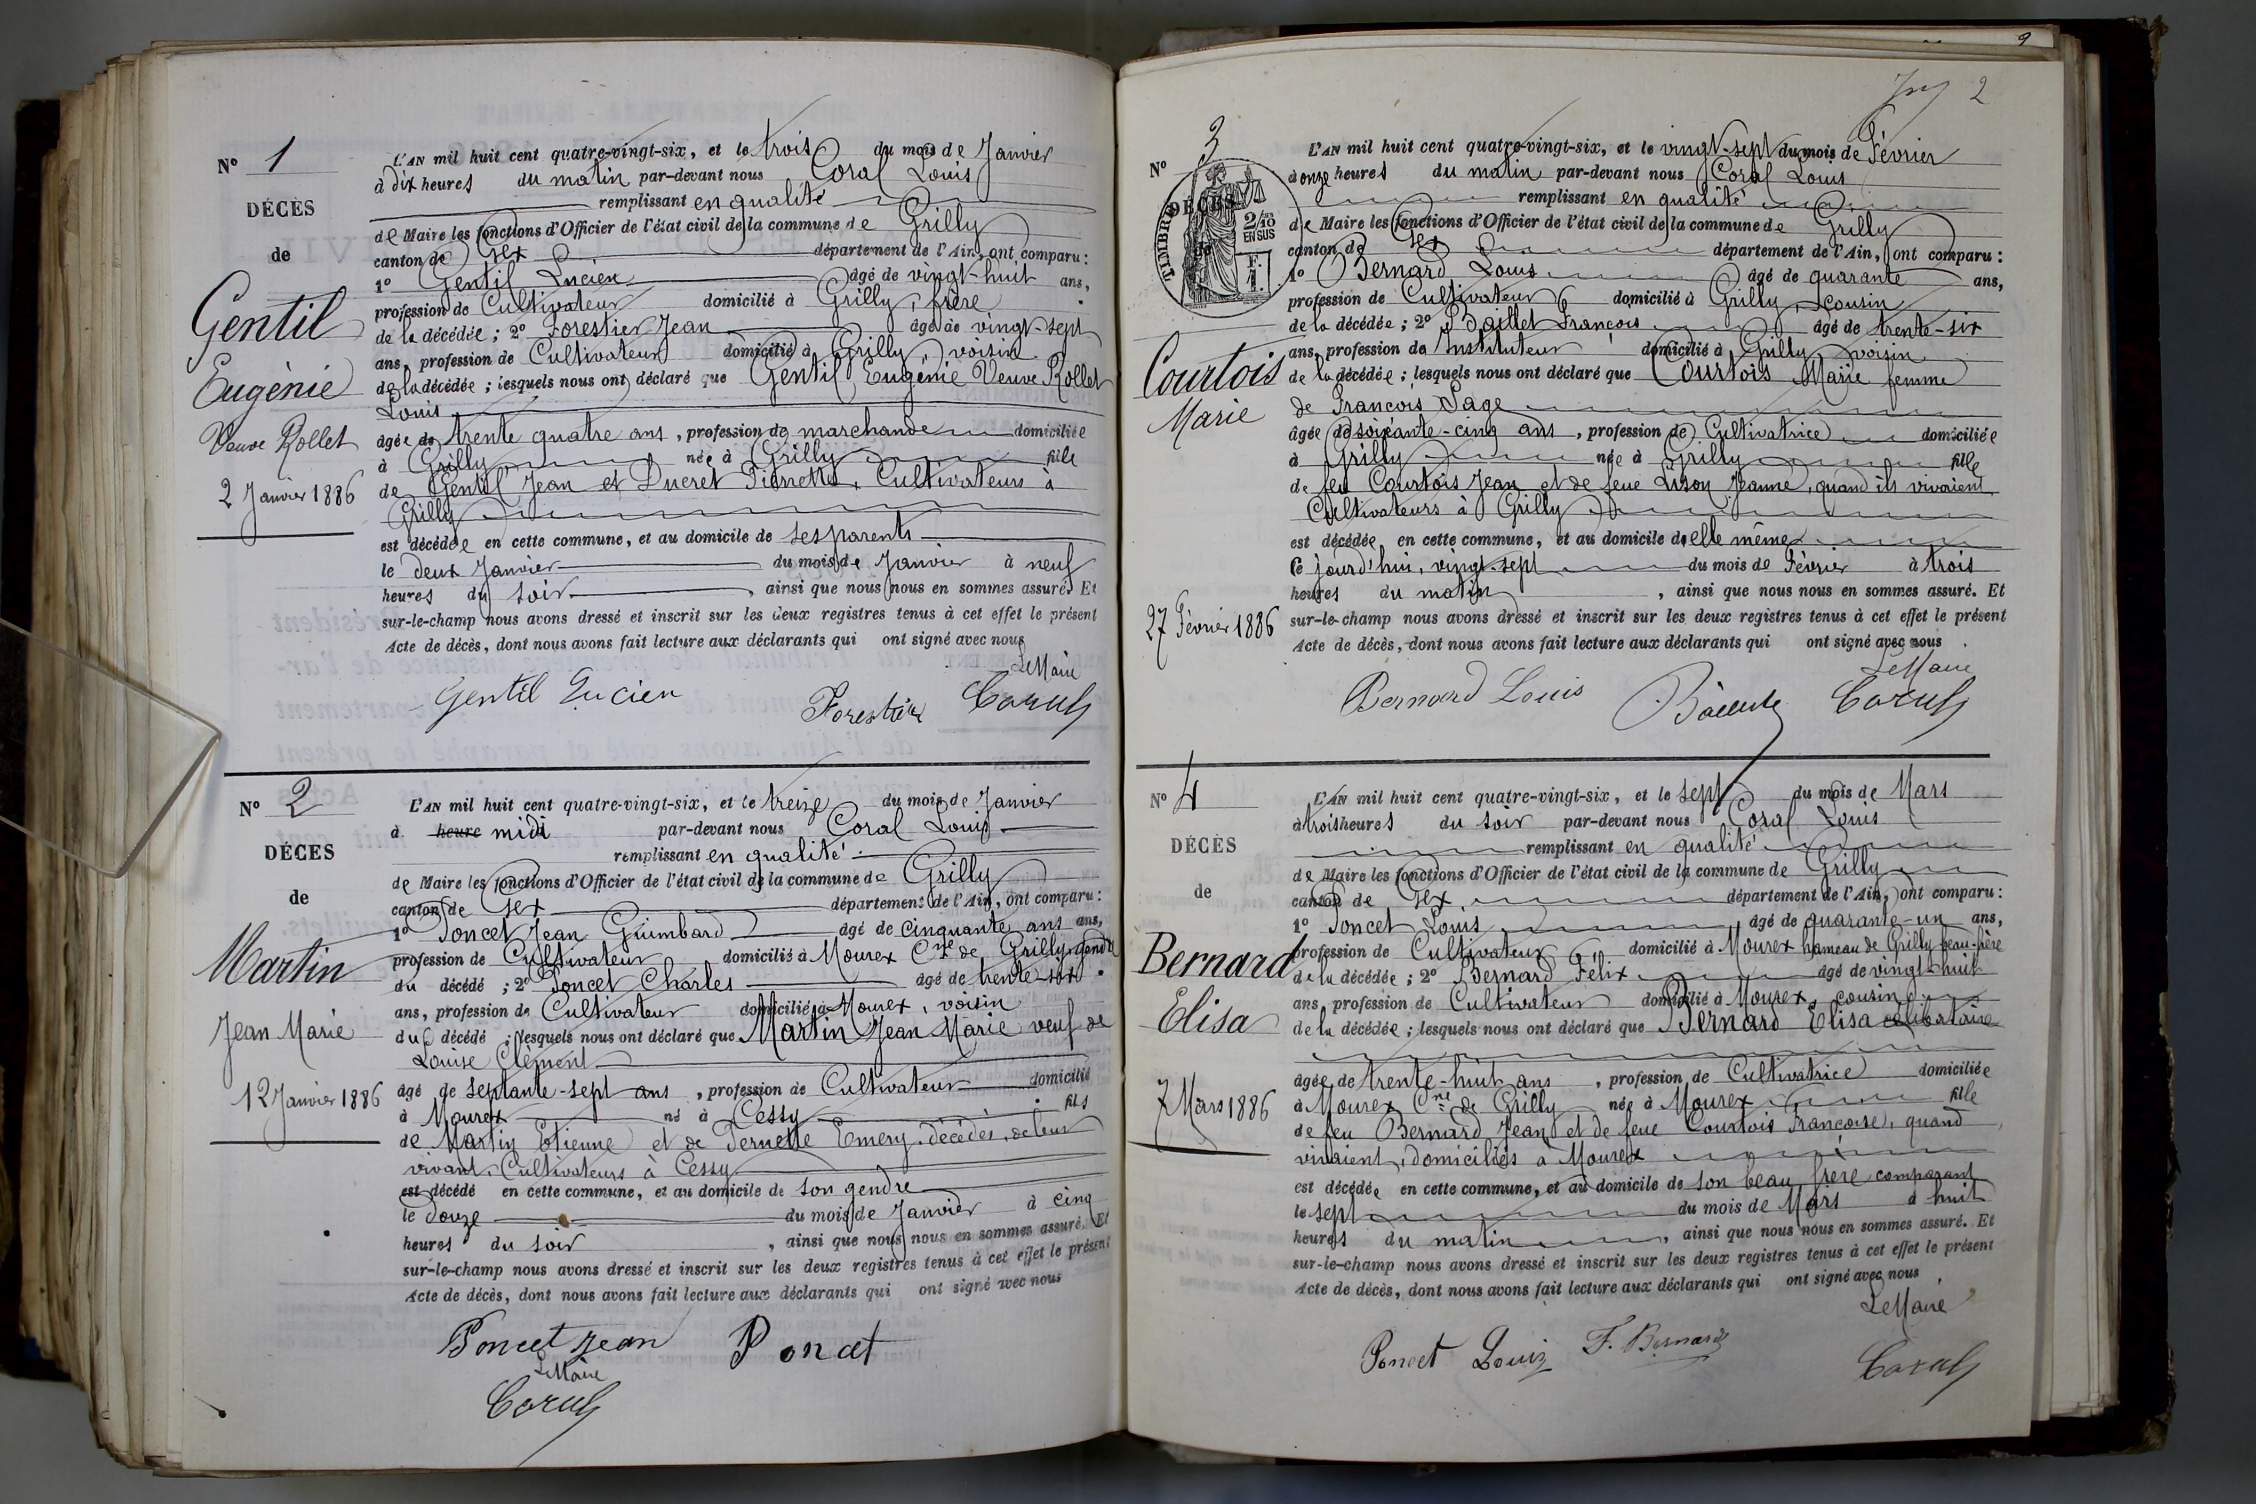 N° 1
DÉCÈS
de
Gentil
Eugénie
Veuve Rollet
2 Janvier 1886
L'AN mil huit cent quatre-vingt-six, et le trois du mois de Janvier
à dix heures du matin par-devant nous Coral Louis
remplissant en qualité
de Maire les fonctions d'Officier de l'état civil de la commune de Grilly
canton de Gex département de l'Ain, ont comparu :
1° Gentil Lucien âgé de vingt-huit ans,
profession de Cultivateur domicilié à Grilly, frère
de la décédée ; 2° Forestier Jean âgé de vingt-sept
ans, profession de Cultivateur domicilié à Grilly, voisin
de la décédée ; lesquels nous ont déclaré que Gentil Eugénie Veuve Rollet
Louis
âgée de trente quatre ans, profession de marchande domiciliée
à Grilly née à Grilly fille
de Gentil Jean et Ducret Pierrette, Cultivateurs à
Grilly
est décédée en cette commune, et au domicile de ses parents
le deux Janvier du mois de Janvier à neuf
heures du soir, ainsi que nous nous en sommes assuré. Et
sur-le-champ nous avons dressé et inscrit sur les deux registres tenus à cet effet le présent
Acte de décès, dont nous avons fait lecture aux déclarants qui ont signé avec nous
Le Maire
Gentil Lucien Forestier Coral
N° 2
DÉCES
de
Martin
Jean Marie
12 Janvier 1886
L'AN mil huit cent quatre-vingt-six, et le treize du mois de Janvier
à heure midi par-devant nous Coral Louis
remplissant en qualité
de Maire les fonctions d'Officier de l'état civil de la commune de Grilly
canton de Gex département de l'Ain, ont comparu :
1° Poncet Jean Guimbard âgé de cinquante ans ans,
profession de Cultivateur domicilié à Mourex Cne de Grilly, gendre
du décédé ; 2° Poncet Charles âgé de trente-six
ans, profession de Cultivateur domicilié à Mourex, voisin
du décédé ; lesquels nous ont déclaré que Martin Jean Marie veuf de
Louise Clément
âgé de septante-sept ans, profession de Cultivateur domicilié
à Mourex né à Cessy fils
de Martin Etienne et de Pernette Emery, décédés, de leur
vivant, Cultivateurs à Cessy
est décédé en cette commune, et au domicile de son gendre
le douze du mois de Janvier à cinq
heures du soir, ainsi que nous nous en sommes assuré. Et
sur-le-champ nous avons dressé et inscrit sur les deux registres tenus à cet effet le présent
Acte de décès, dont nous avons fait lecture aux déclarants qui ont signé avec nous
Poncet Jean Poncet
Le Maire
Coral
2
N° 3
DÉCÈS
TIMBRE
2/10 EN SUS
Courtois
Marie
27 Février 1886
L'AN mil huit cent quatre-vingt-six, et le vingt-sept du mois de Février
à onze heures du matin par-devant nous Coral Louis
remplissant en qualité
de Maire les fonctions d'Officier de l'état civil de la commune de Grilly
canton de Gex département de l'Ain, ont comparu :
1° Bernard Louis âgé de quarante ans,
profession de Cultivateur domicilié à Grilly, cousin
de la décédée ; 2° Baillet François âgé de trente-six
ans, profession de Instituteur domicilié à Grilly, voisin
de la décédée ; lesquels nous ont déclaré que Courtois Marie femme
de François Sage
âgée de soixante-cinq ans, profession de Cultivatrice domiciliée
à Grilly née à Grilly fille
de feu Courtois Jean et de feue Jeanne, quand ils vivaient
Cultivateurs à Grilly
est décédée en cette commune, et au domicile d'elle même
Ce jourd'hui, vingt-sept du mois de Février à trois
heures du matin, ainsi que nous nous en sommes assuré. Et
sur-le-champ nous avons dressé et inscrit sur les deux registres tenus à cet effet le présent
Acte de décès, dont nous avons fait lecture aux déclarants qui ont signé avec nous.
Le Maire
Bernard Louis Coral
N° 4
DÉCÈS
de
Bernard
Elisa
7 Mars 1886
L'AN mil huit cent quatre-vingt-six, et le sept du mois de Mars
à trois heures du soir par-devant nous Coral Louis
remplissant en qualité
de Maire les fonctions d'Officier de l'état civil de la commune de Grilly
canton de Gex département de l'Ain, ont comparu :
1° Poncet Louis âgé de quarante-un ans,
profession de Cultivateur domicilié à Mourex hameau de Grilly beau-frère
de la décédée ; 2° Bernard Félix âgé de vingt-huit
ans, profession de Cultivateur domicilié à Mourex, cousin
de la décédée ; lesquels nous ont déclaré que Bernard Elisa célibataire
âgée de trente-huit ans, profession de Cultivatrice domiciliée
à Mourex Cne de Grilly née à Mourex fille
de feu Bernard Jean et de feue Courtois Françoise, quand
vivaient, domiciliés à Mourex
est décédée en cette commune, et au domicile de son beau frère comparant
le sept du mois de Mars à huit
heures du matin, ainsi que nous nous en sommes assuré. Et
sur-le-champ nous avons dressé et inscrit sur les deux registres tenus à cet effet le présent
Acte de décès, dont nous avons fait lecture aux déclarants qui ont signé avec nous.
Le Maire
Poncet Louis F. Bernard
Coral